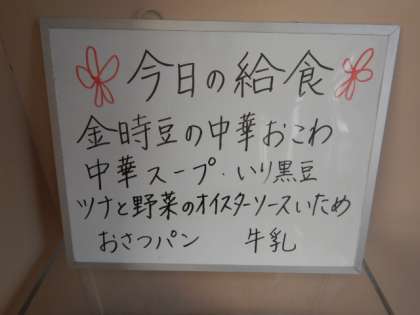 今日の給食
金時豆の中華おこわ
中華スープ・いり黒豆
ツナと野菜のオイスターソースいため
おさつパン 牛乳